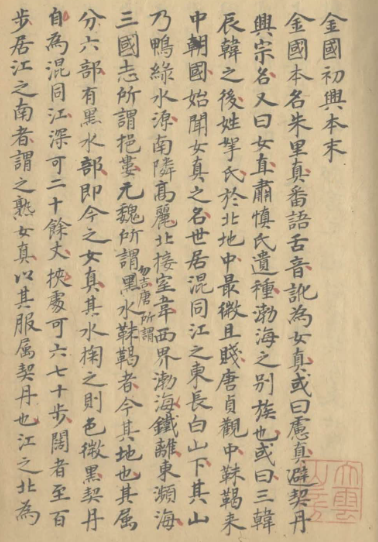 金國初興本末
金國本名朱里真番語舌音訛為女真或曰慮真避契丹
興宗名又曰女直肅慎氏遺種渤海之別族也或曰三韓
辰韓之後姓挐氏於北地中最微且賤唐貞觀中靺鞨来
中朝國始聞女真之名世居混同江之東長白山下其山
乃鴨緑水源南隣髙麗北接室韋西界渤海鐵離東瀕海
三國志所謂挹婁元魏所謂勿吉唐所謂黑水靺鞨者今其地也其属
分六部有黑水部即今之女真其水掬之則色微黑契丹
目為混同江深可二十餘丈挾處可六七十步闊者至百
步居江之南者謂之熟女真以其服属契丹也江之北為
大雲山房